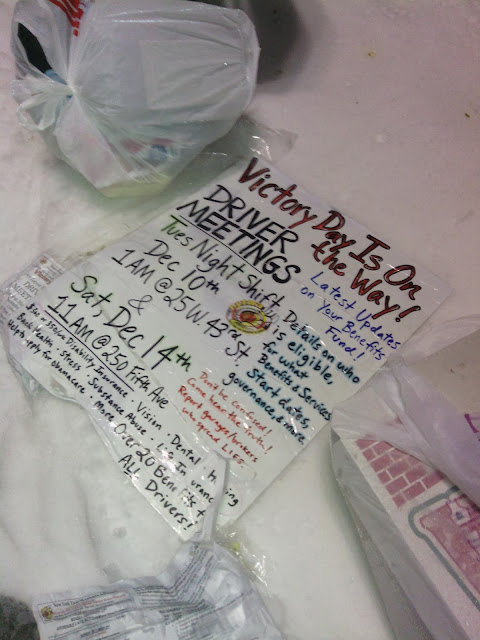 Victory Day Is On
the Way!
DRIVER
MEETINGS
Latest Updates
on Your Benefits
Fund!
Tues Night Shift
Dec 10th
1AM @ 25 W. 43rd St
&
Sat, Dec 14th
11AM @ 250 Fifth Ave
Details on who
eligible,
for what
Benefits & Services
Start dates,
governance, & more.
Don't be confused!
Come hear the truth!
Report garages/brokers
who spread LIES
Disability Insurance · Vision · Dental
Back Health · Stress · Substance Abuse · Life Insurance
Help to apply for Obamacare · More
Over 20 Benefits
ALL Drivers!